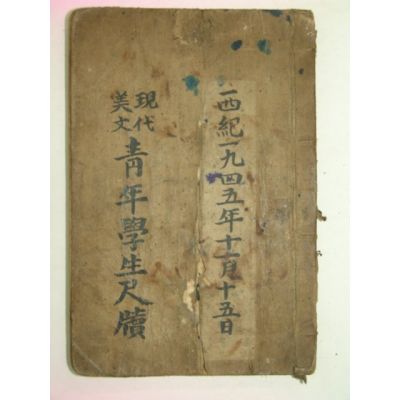 西紀一九四五年十一月十五日
現代
美文
青年學生尺牘